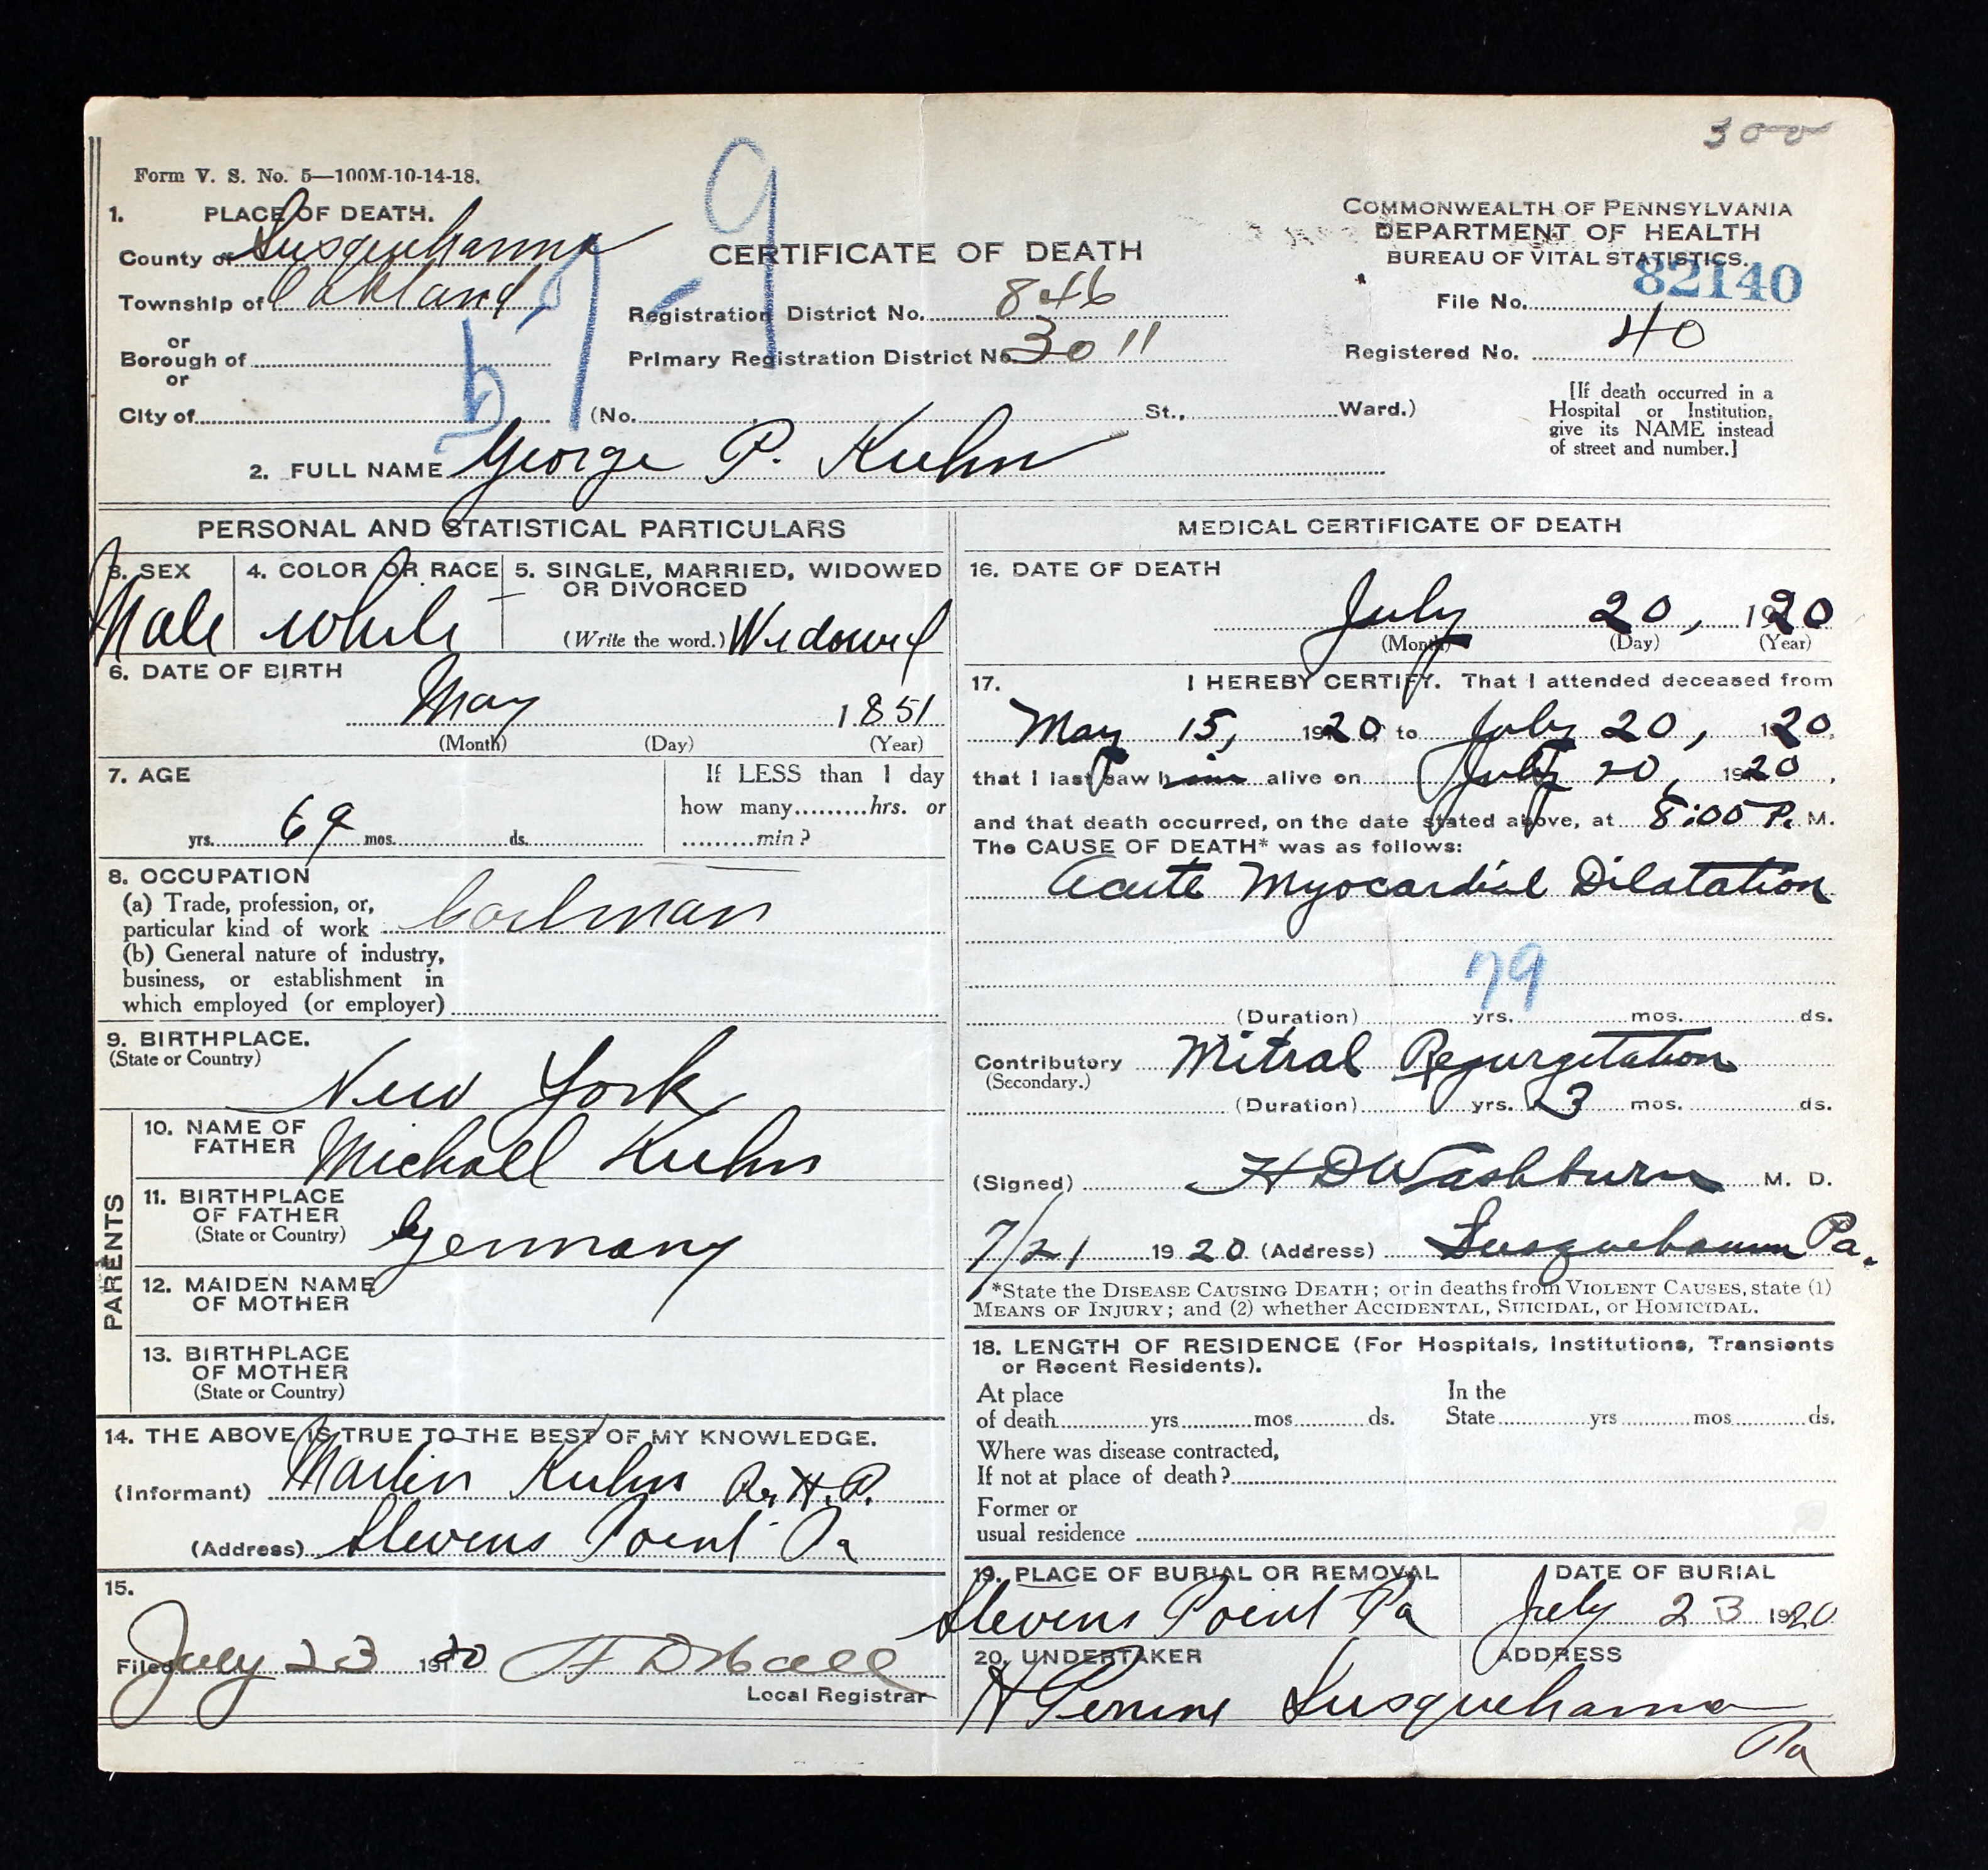 3000
Form V. S. No. 5—100M-10-14-18.
1. PLACE OF DEATH.
County of Susquehanna
Township of Oakland
or
Borough of
or
City of
CERTIFICATE OF DEATH
Registration District No. 846
Primary Registration District No. 3011
(No. St., Ward.)
COMMONWEALTH OF PENNSYLVANIA
DEPARTMENT OF HEALTH
BUREAU OF VITAL STATISTICS.
82140
File No.
Registered No. 40
[If death occurred in a
Hospital or Institution,
give its NAME instead
of street and number.]
2. FULL NAME George P. Kuhn
PERSONAL AND STATISTICAL PARTICULARS
3. SEX
Male
4. COLOR OR RACE
White
5. SINGLE, MARRIED, WIDOWED
OR DIVORCED
(Write the word.) Widowed
6. DATE OF BIRTH
May 1851
(Month) (Day) (Year)
7. AGE
yrs. 69 mos. ds.
If LESS than 1 day
how many hrs. or
min?
8. OCCUPATION
(a) Trade, profession, or,
particular kind of work
(b) General nature of industry,
business, or establishment in
which employed (or employer)
9. BIRTHPLACE.
(State or Country)
New York
PARENTS
10. NAME OF
FATHER Michael Kuhn
11. BIRTHPLACE
OF FATHER
(State or Country) Germany
12. MAIDEN NAME
OF MOTHER
13. BIRTHPLACE
OF MOTHER
(State or Country)
14. THE ABOVE IS TRUE TO THE BEST OF MY KNOWLEDGE.
(Informant) Martin Kuhn Per H. P.
(Address) Stevens Point Pa
15.
Filed July 23 1920
Local Registrar
MEDICAL CERTIFICATE OF DEATH
16. DATE OF DEATH
July 20, 1920
(Month) (Day) (Year)
17. I HEREBY CERTIFY. That I attended deceased from
May 15, 1920 to July 20, 1920,
that I last saw him alive on July 20, 1920,
and that death occurred, on the date stated above, at 8:00 P. M.
The CAUSE OF DEATH* was as follows:
Acute Myocardial Dilatation
79
(Duration) yrs. mos. ds.
Contributory Mitral Regurgitation
(Secondary.)
(Duration) yrs. 3 mos. ds.
(Signed) H D Washburn M. D.
7/21 1920 (Address) Susquehanna Pa.
*State the DISEASE CAUSING DEATH; or in deaths from VIOLENT CAUSES, state (1)
MEANS OF INJURY; and (2) whether ACCIDENTAL, SUICIDAL, or HOMICIDAL.
18. LENGTH OF RESIDENCE (For Hospitals, Institutions, Transients
or Recent Residents).
At place
of death yrs mos ds.
In the
State yrs mos ds.
Where was disease contracted,
If not at place of death?
Former or
usual residence
19. PLACE OF BURIAL OR REMOVAL
Stevens Point Pa
DATE OF BURIAL
July 23 1920
20. UNDERTAKER
H Perrine
ADDRESS
Susquehanna
Pa